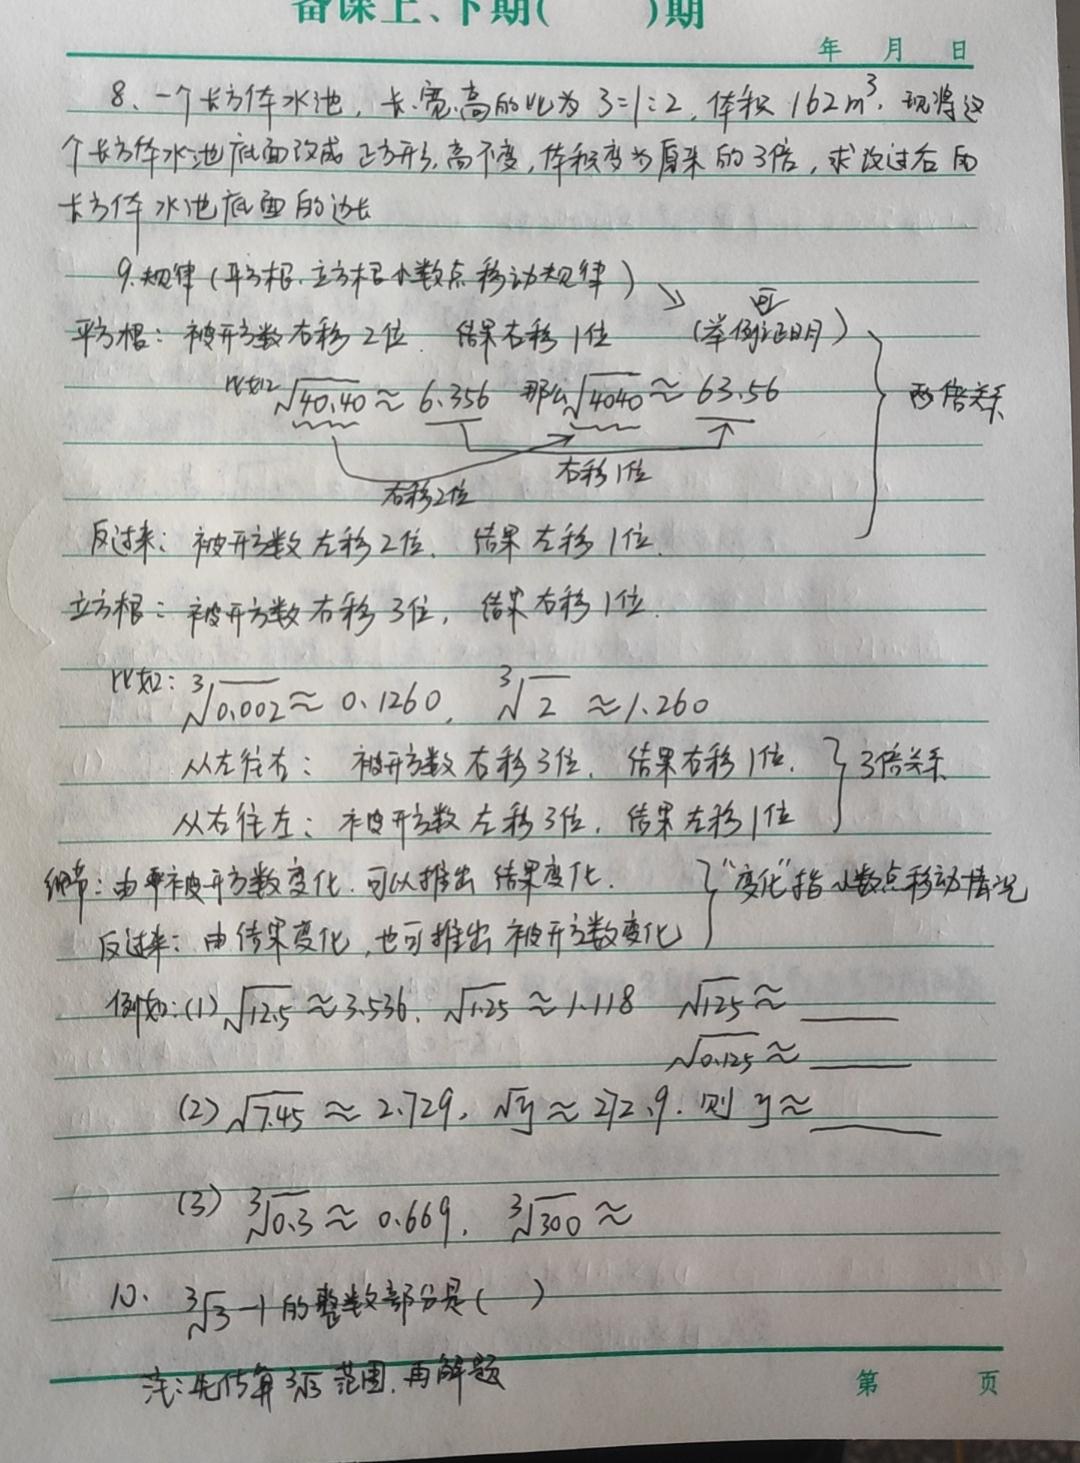 备课上、下期(　　)期
年　月　日
8、一个长方体水池，长、宽、高的比为 3:1:2，体积 162m³. 现将这
个长方体水池底面改成正方形，高不变，体积变为原来的3倍，求改过后的
长方体水池底面的边长
9.规律（平方根、立方根小数点移动规律）
平方根：被开方数右移2位. 结果右移1位 （举例证明）
比如 √40.40 ≈ 6.356 那么 √4040 ≈ 63.56 两倍关系
右移2位 右移1位
反过来：被开方数左移2位. 结果左移1位.
立方根：被开方数右移3位, 结果右移1位.
比如：³√0.002 ≈ 0.1260, ³√2 ≈ 1.260
从左往右：被开方数右移3位, 结果右移1位. 3倍关系
从右往左：被开方数左移3位, 结果左移1位
细节：由被开方数变化. 可以推出结果变化. “变化”指小数点移动情况
反过来：由结果变化, 也可推出被开方数变化
例如:(1) √12.5 ≈ 3.536, √1.25 ≈ 1.118 √125 ≈ ____
√0.125 ≈ ____
(2) √7.45 ≈ 2.729, √y ≈ 272.9. 则 y ≈ ____
(3) ³√0.3 ≈ 0.669, ³√300 ≈
10、 ³√3 -1 的整数部分是( )
注:先估算 ³√3 范围, 再解题
第　页